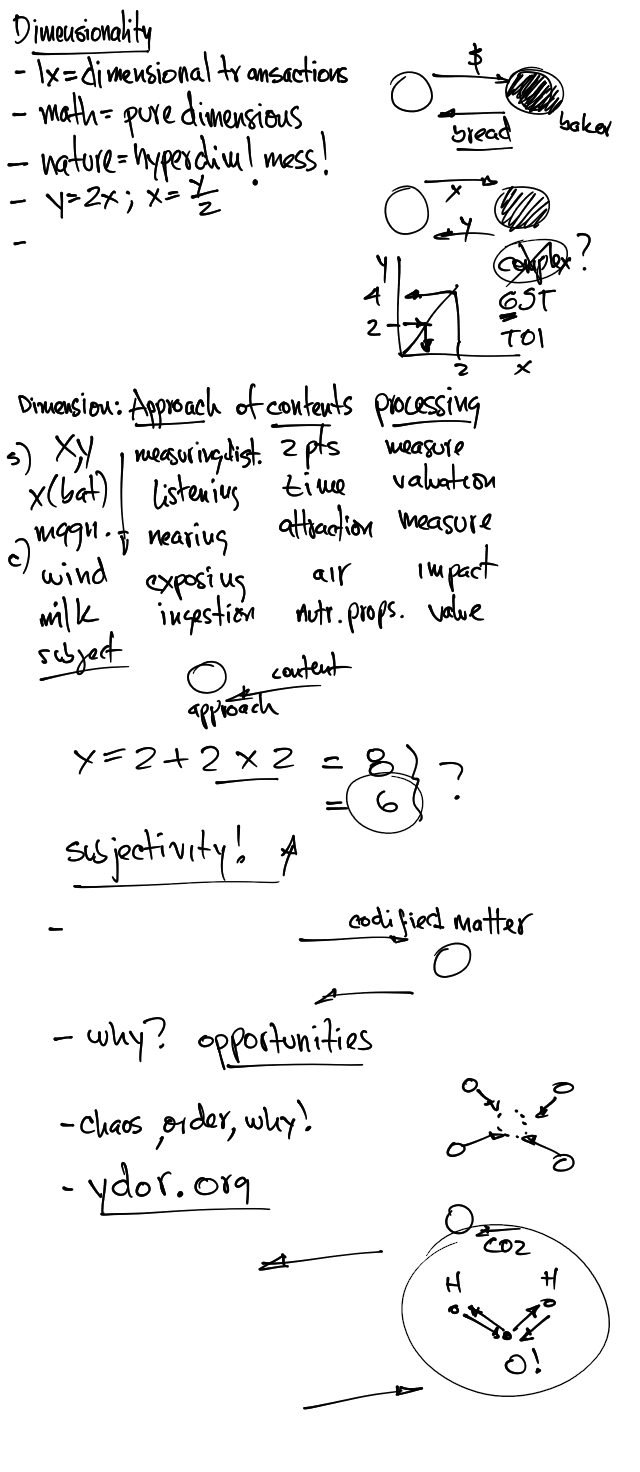 Dimensionality
- 1x = dimensional transactions
- math = pure dimensions
- nature = hyperdim! mess!
- y=2x; x= y/2
-
$
bread
baker
x
y
complex?
GST
TOI
y
4
2
2
x
Dimension: Approach of contents processing
s) x,y measuring dist. 2 pts measure
x(bat) listening time valuation
magn. nearing attraction measure
c) wind exposing air impact
milk ingestion nutr. props. value
subject
content
approach
y = 2 + 2 x 2 = 8 } ?
= 6
subjectivity!
-
codified matter
- why? opportunities
- chaos, order, why!
- ydor.org
CO2
H H
O!